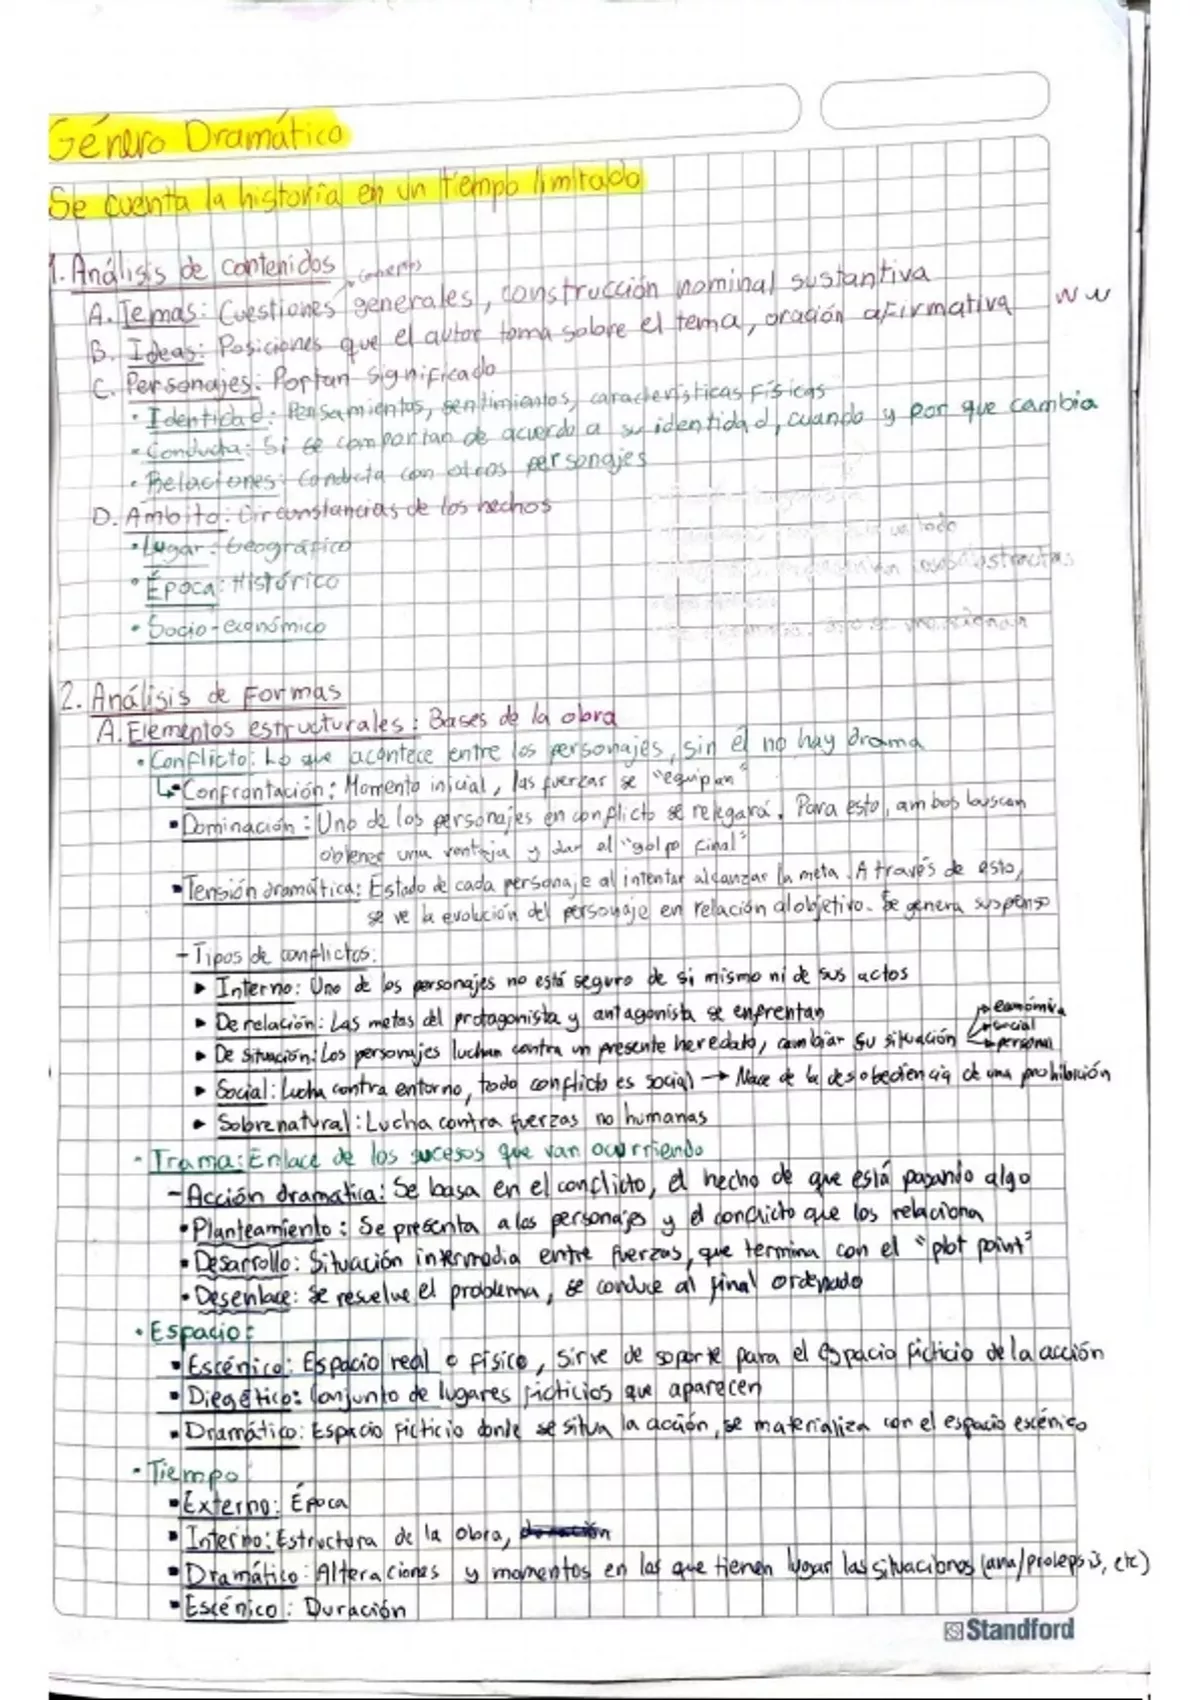 Género Dramático
Se cuenta la historia en un tiempo limitado
1. Análisis de contenidos
A. Temas: Cuestiones generales, construcción nominal sustantiva
B. Ideas: Posiciones que el autor toma sobre el tema, oración afirmativa
C. Personajes: Portan significado
• Identidad: Pensamientos, sentimientos, características físicas
• Conducta: Si se comportan de acuerdo a su identidad, cuando y por que cambia
• Relaciones: Conducta con otros personajes
D. Ámbito: Circunstancias de los hechos
• Lugar: Geográfico
• Época: Histórico
• Socio-económico
2. Análisis de Formas
A. Elementos estructurales: Bases de la obra
• Conflicto: Lo que acontece entre los personajes, sin él no hay drama
↳ Confrontación: Momento inicial, las fuerzas se "equipan"
▪ Dominación: Uno de los personajes en conflicto se relegará. Para esto, ambos buscan
obtener una ventaja y dar el "golpe final"
▪ Tensión dramática: Estado de cada personaje al intentar alcanzar la meta. A través de esto,
se ve la evolución del personaje en relación al objetivo. Se genera suspenso
- Tipos de conflictos:
▸ Interno: Uno de los personajes no está seguro de si mismo ni de sus actos
▸ De relación: Las metas del protagonista y antagonista se enfrentan
▸ De situación: Los personajes luchan contra un presente heredato, cambiar su situación económica social personal
▸ Social: Lucha contra entorno, todo conflicto es social → Nace de la desobediencia de una prohibición
▸ Sobrenatural: Lucha contra fuerzas no humanas
• Trama: Enlace de los sucesos que van ocurriendo
- Acción dramatica: Se basa en el conflicto, el hecho de que está pasando algo
• Planteamiento: Se presenta a los personajes y el conflicto que los relaciona
• Desarrollo: Situación intermedia entre fuerzas, que termina con el "plot point"
• Desenlace: Se resuelve el problema, se conduce al final ordenado
• Espacio:
▪ Escénico: Espacio real o físico, sirve de soporte para el espacio ficticio de la acción
▪ Diegético: Conjunto de lugares ficticios que aparecen
▪ Dramático: Espacio ficticio donde se situa la acción, se materializa con el espacio escénico
• Tiempo:
▪ Externo: Época
▪ Interno: Estructura de la obra,
▪ Dramático: Alteraciones y momentos en las que tienen lugar las situaciones (ana/prolepsis, etc)
▪ Escénico: Duración
Standford